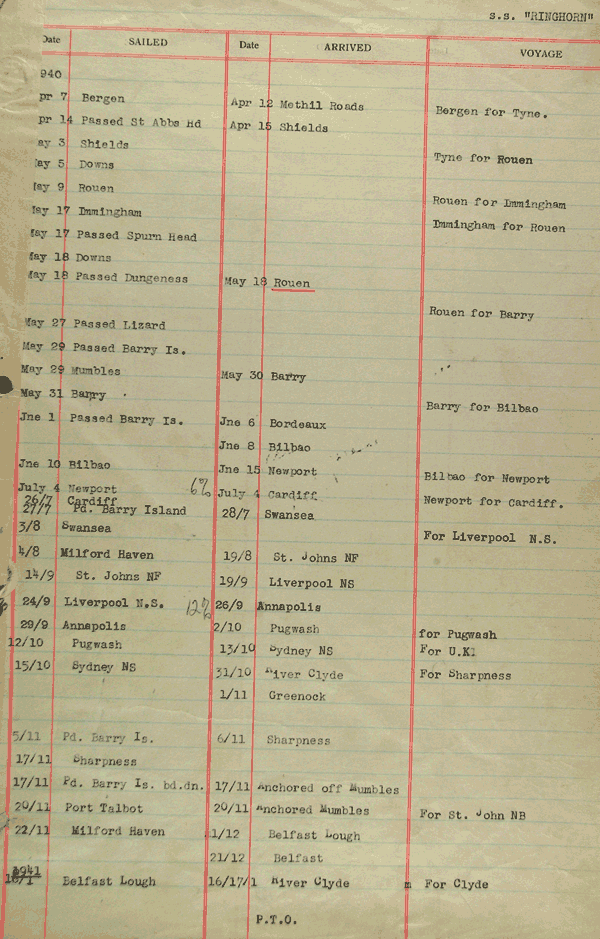 s.s. "RINGHORN"
Date SAILED Date ARRIVED VOYAGE
940
pr 7 Bergen Apr 12 Methil Roads Bergen for Tyne.
pr 14 Passed St Abbs Hd Apr 15 Shields
ay 3 Shields Tyne for Rouen
ay 5 Downs
ay 9 Rouen Rouen for Immingham
May 17 Immingham Immingham for Rouen
May 17 Passed Spurn Head
May 18 Downs
May 18 Passed Dungeness May 18 Rouen
Rouen for Barry
May 27 Passed Lizard
May 29 Passed Barry Is.
May 29 Mumbles May 30 Barry
May 31 Barry Barry for Bilbao
Jne 1 Passed Barry Is. Jne 6 Bordeaux
Jne 8 Bilbao
Jne 10 Bilbao Jne 15 Newport Bilbao for Newport
July 4 Newport July 4 Cardiff Newport for Cardiff.
26/7 Cardiff
27/7 Pd. Barry Island 28/7 Swansea
3/8 Swansea For Liverpool N.S.
4/8 Milford Haven 19/8 St. Johns NF
14/9 St. Johns NF 19/9 Liverpool NS
24/9 Liverpool N.S. 26/9 Annapolis
29/9 Annapolis 2/10 Pugwash for Pugwash
12/10 Pugwash 13/10 Sydney NS For U.K.
15/10 Sydney NS 31/10 River Clyde For Sharpness
1/11 Greenock
5/11 Pd. Barry Is. 6/11 Sharpness
17/11 Sharpness
17/11 Pd. Barry Is. bd.dn. 17/11 Anchored off Mumbles
20/11 Port Talbot 20/11 Anchored Mumbles For St. John NB
22/11 Milford Haven 1/12 Belfast Lough
21/12 Belfast
1941
Belfast Lough 16/17/1 River Clyde m For Clyde
P.T.O.